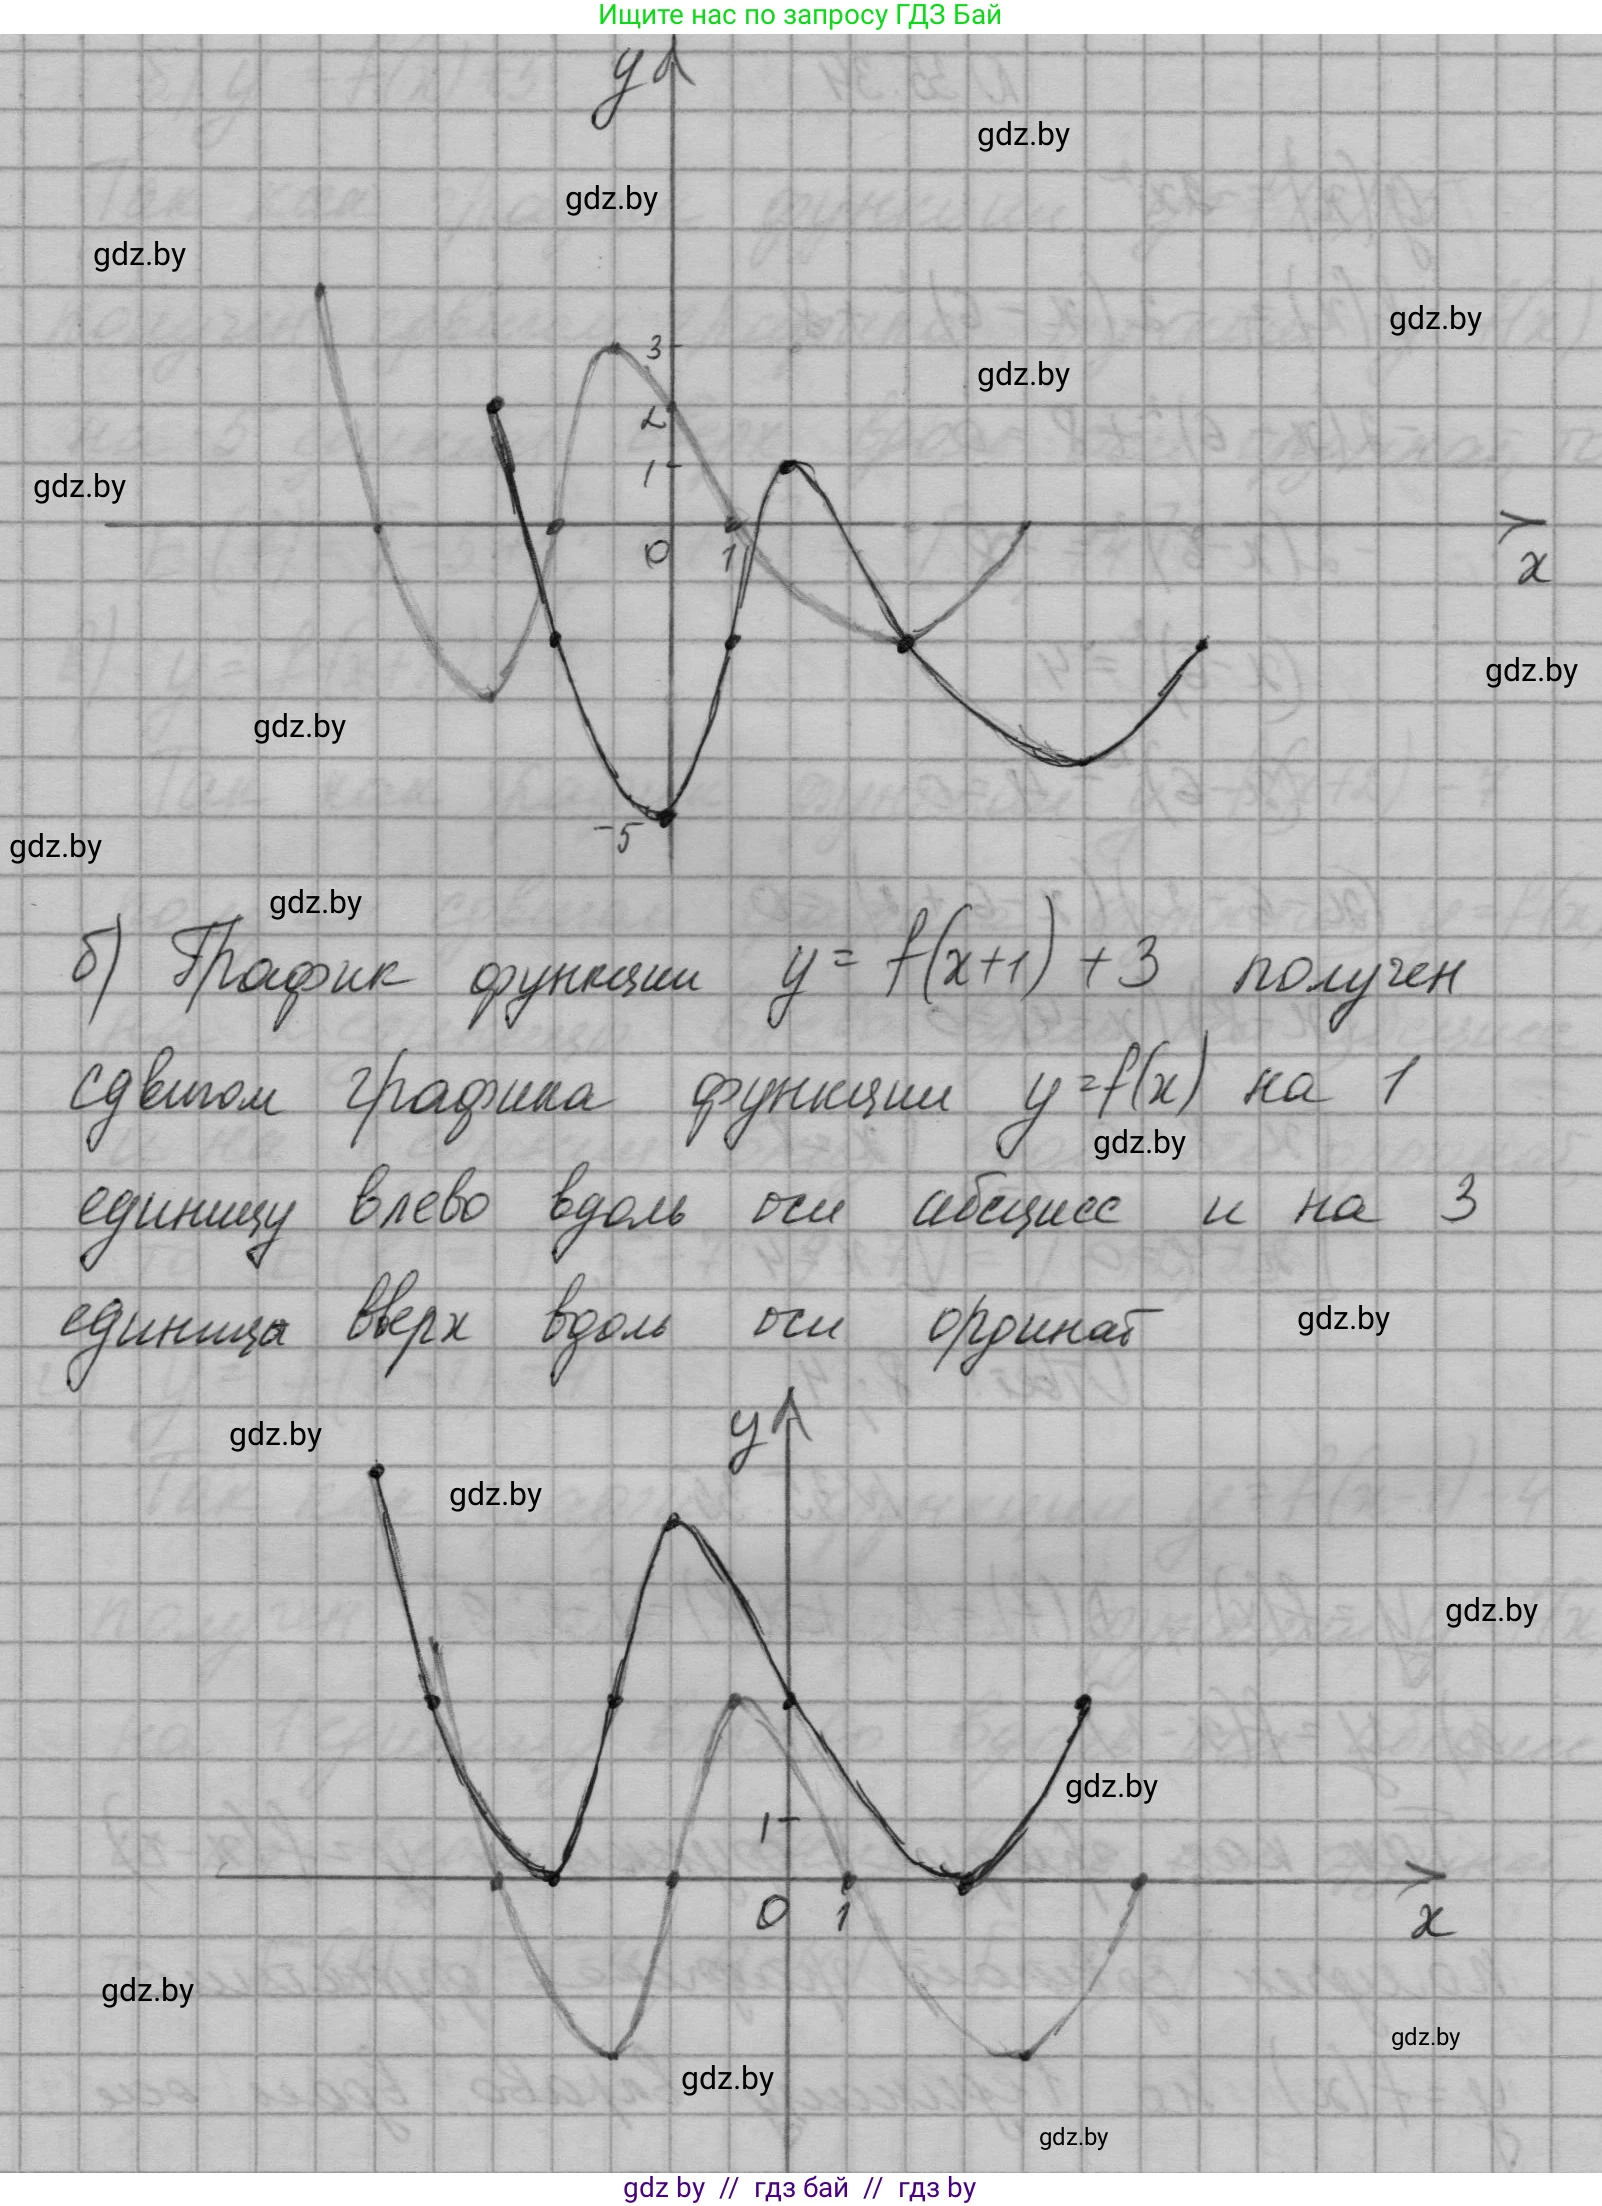 Ищите нас по запросу ГДЗ Бай
y
gdz.by
gdz.by
gdz.by
gdz.by
3
gdz.by
2
1
gdz.by
0 1 x
gdz.by
gdz.by
-5
gdz.by
gdz.by
б) График функции y = f(x+1) + 3 получен
сдвигом графика функции y=f(x) на 1
gdz.by
единицу влево вдоль оси абсцисс и на 3
единица вверх вдоль оси ординат
gdz.by
y
gdz.by
gdz.by
gdz.by
gdz.by
1
0 1 x
gdz.by
gdz.by
gdz.by
gdz.by
gdz by // гдз бай // гдз by